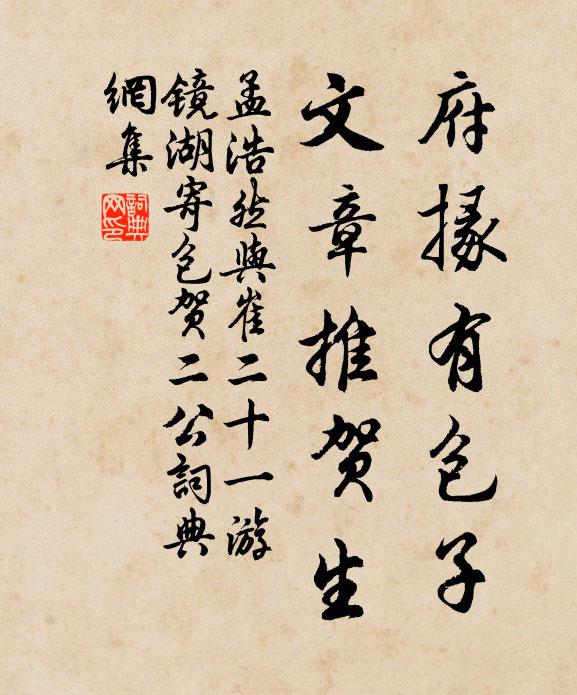 府掾有包子
文章推贺生
孟浩然與崔二十一游
镜湖寄包贺二公詞典
網集
詞典網印